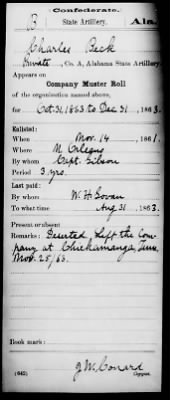 Confederate.
B State Artillery. Ala.
Charles Beck
Private, Co. A, Alabama State Artillery.
Appears on
Company Muster Roll
of the organization named above,
for Oct. 31, 1863 to Dec 31, 1863.
Enlisted:
When Nov. 14, 1861.
Where N Orleans
By whom Capt. Gibson
Period 3 yrs.
Last paid:
By whom W. H. Govan
To what time Aug 31, 1863.
Present or absent
Remarks: Deserted, Left the Com
pany at Chickamauga, Tenn,
Nov. 25/63.
Book mark:
J M Conard
(642) Copyist.